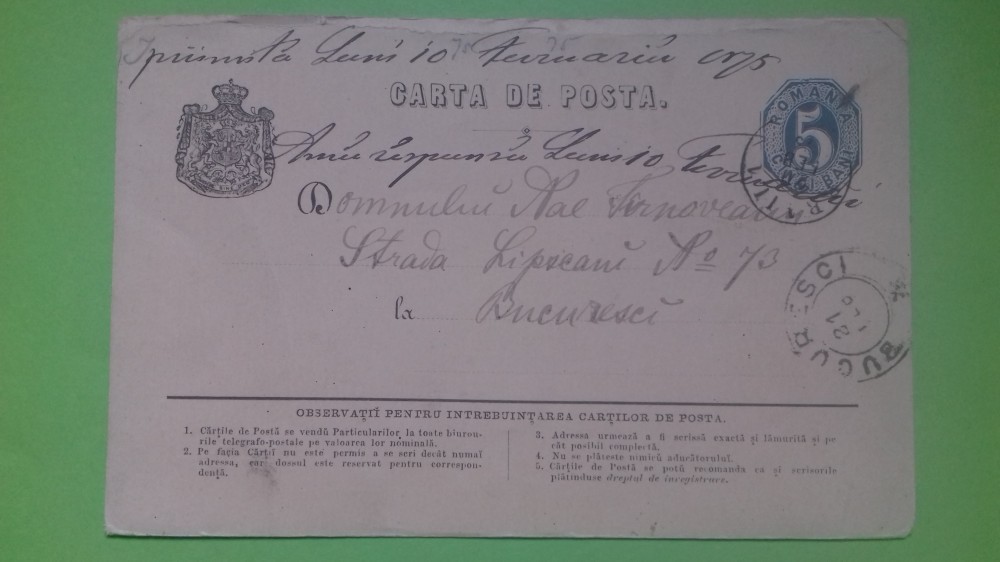 primita Luni 10 Fevruariu 1875
CARTA DE POSTA.
ROMANIA
5
CINCI BANI
Amu respunsu Luni 10 Fevruariu
Domnului Nae
Strada Lipscani No 73
la Bucuresci
BUCURESCI
21
OBSERVAȚIĬ PENTRU INTREBUINȚAREA CARȚILOR DE POSTA.
1. Cărțile de Postă se vendŭ Particularilor la toate biurou-
rile telegrafo-postale pe valoarea lor nominală.
2. Pe facia Cărțiĭ nu este permis a se scri decât numaĭ
adressa, ear dossul este reservat pentru correspon-
dență.
3. Adressa urmează a fi scrissă exactă și lămurită și pe
cât posibil complectă.
4. Nu se plătește nimicŭ aducătoruluĭ.
5. Cărțile de Postă se potŭ recomanda ca și scrisorile
plătinduse dreptul de inregistrare.